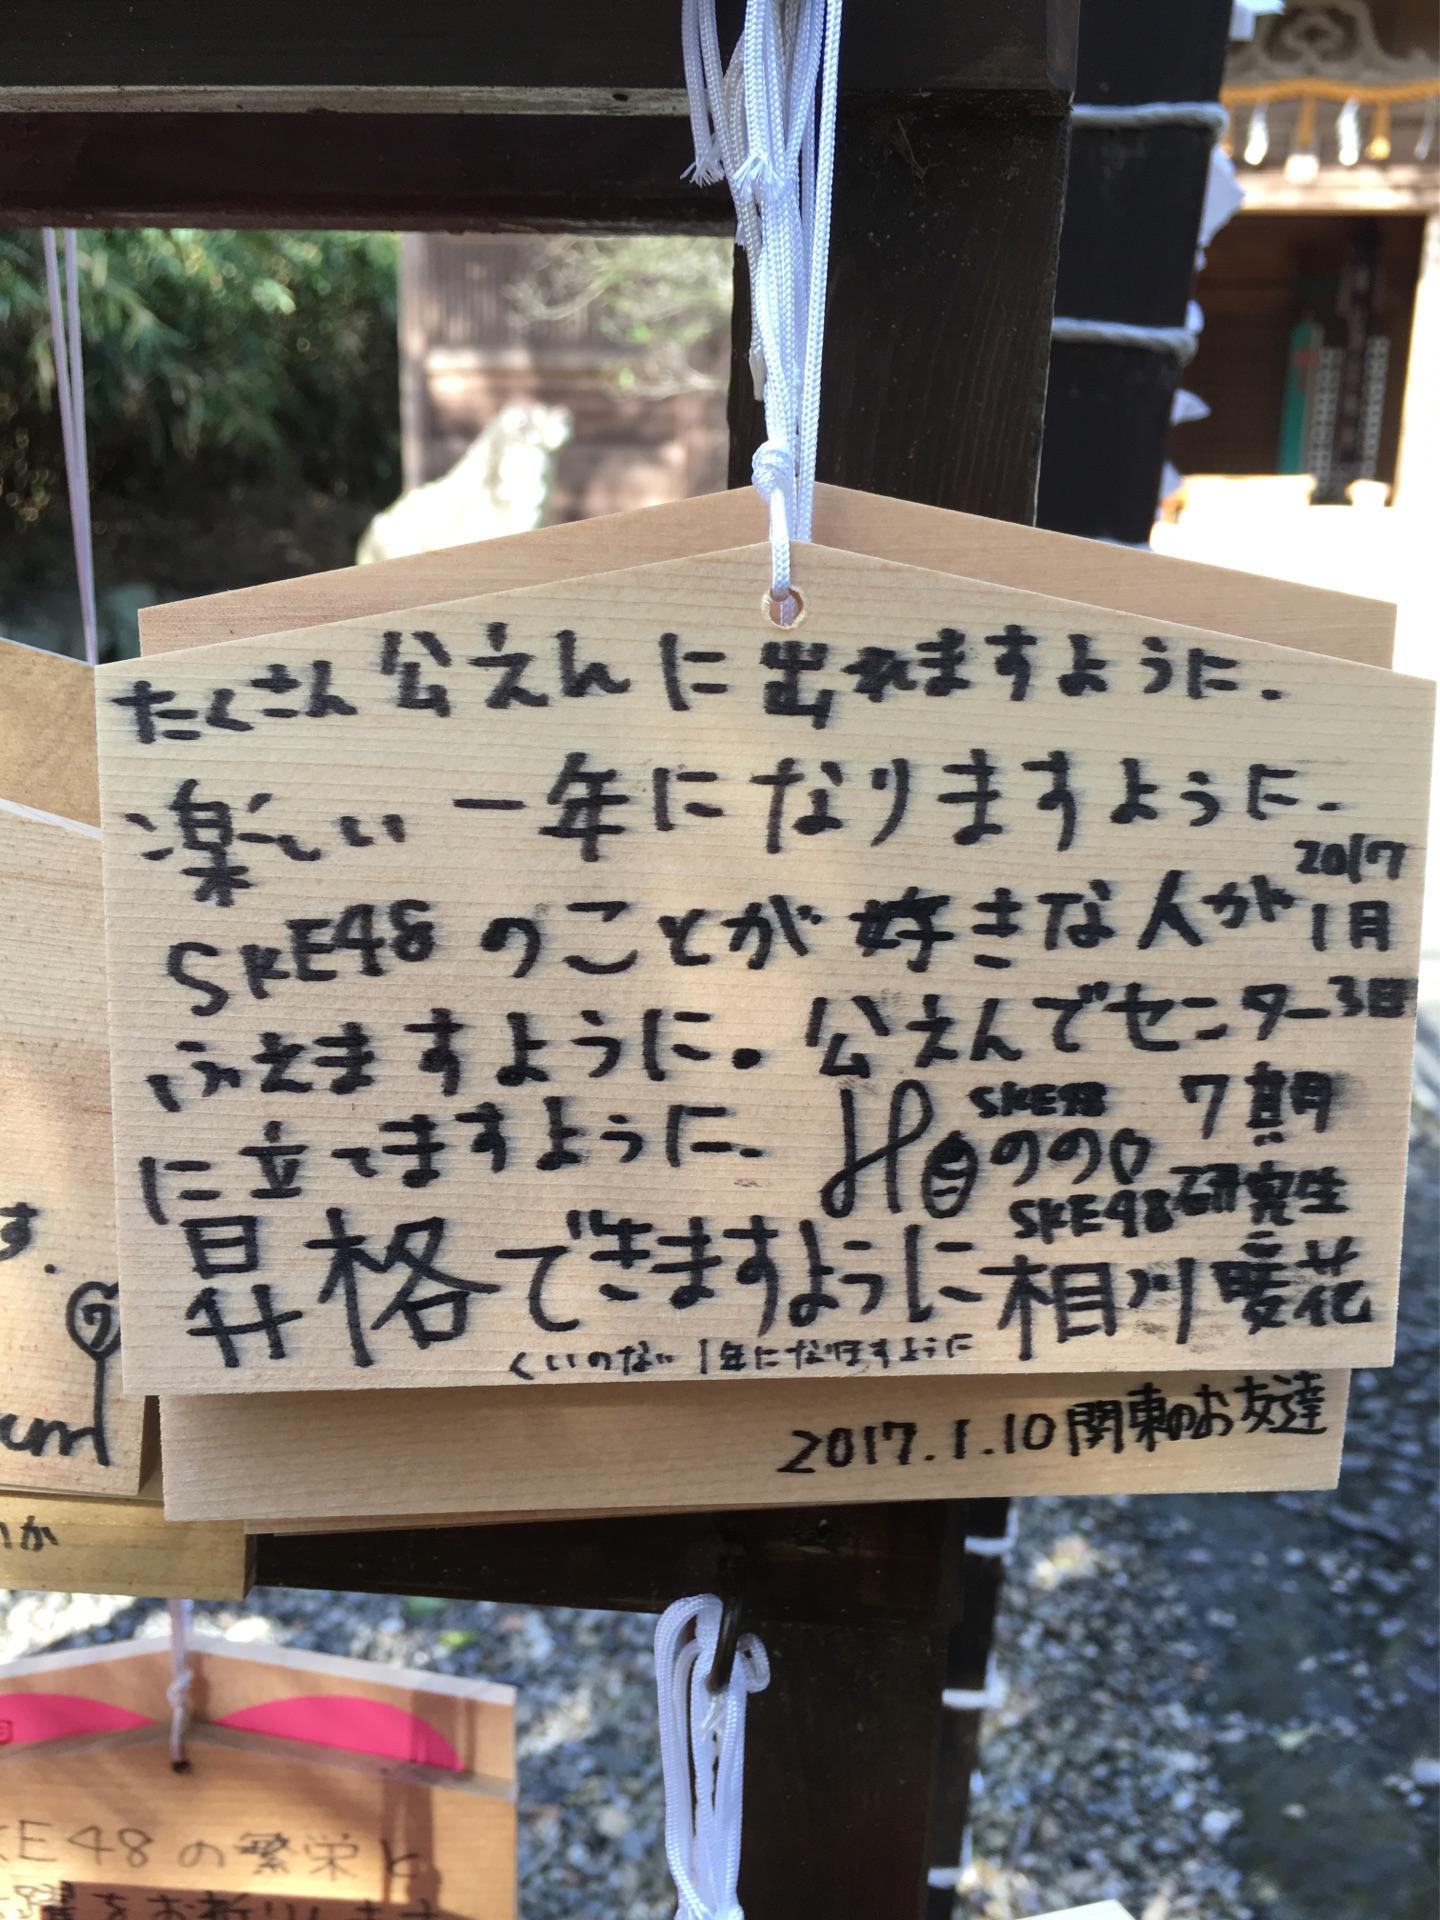 たくさん公えんに出れますように.
楽しい一年になりますように.
SKE48のことが好きな人が
2017
1月
3日
ふえますように。公えんでセンター
に立てますように.
SKE48
7期
のの
SKE48研究生
昇格できますように
相川暖花
くいのない1年になりますように
2017.1.10関東のお友達
す.
um
か
KE48の繁栄と
躍をお祈りします